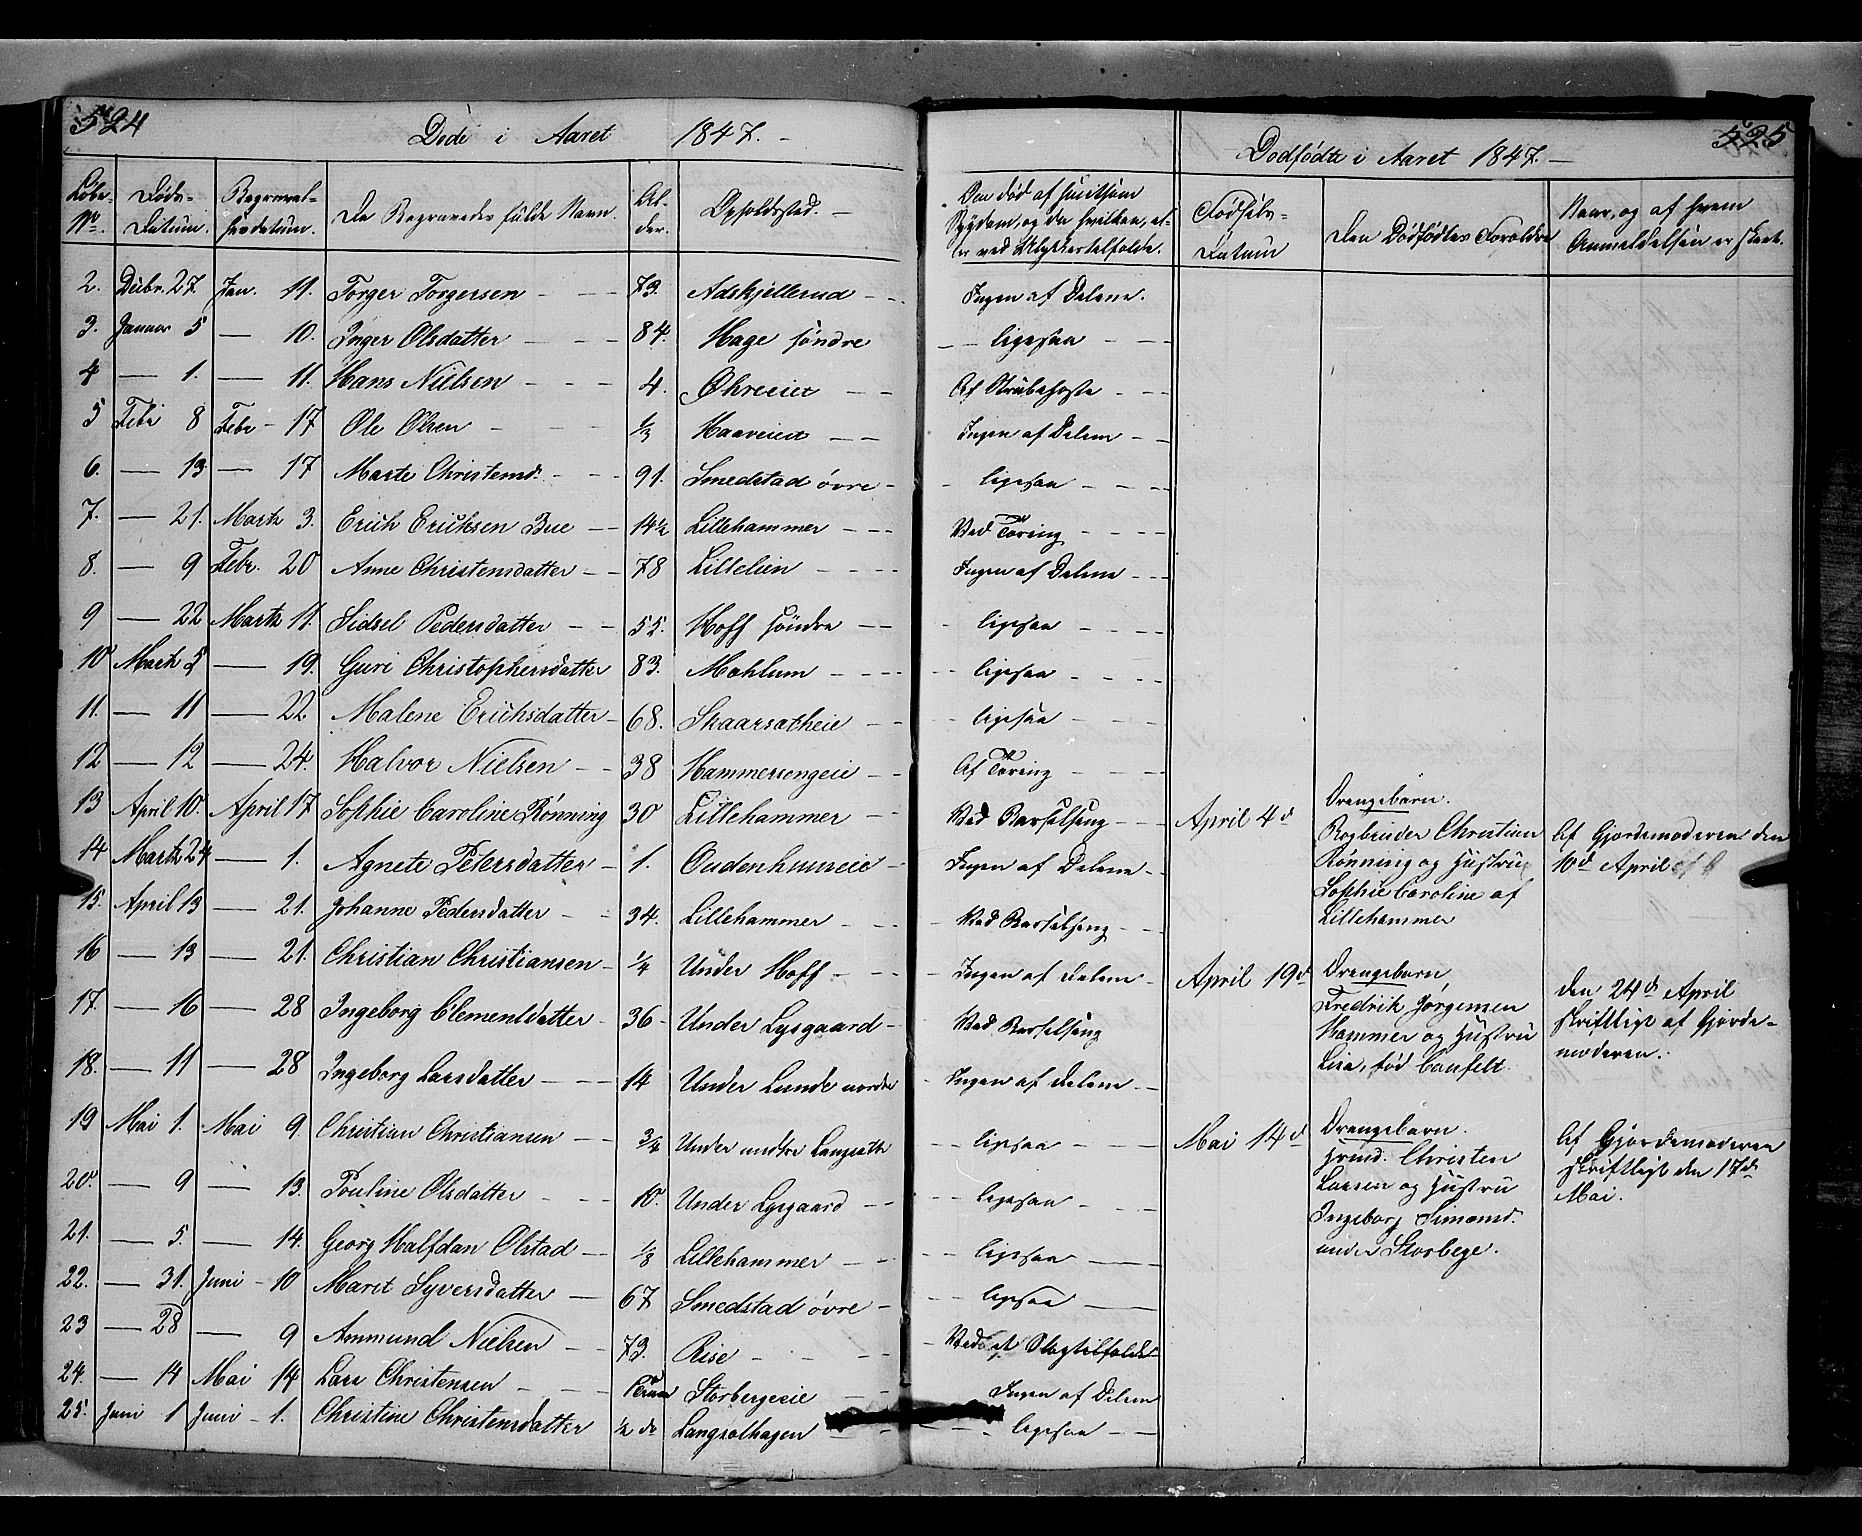 524
Døde i Aaret 1847. -
Løbe No. Døds-Datum. Begravel-sesdatum. De Begravedes fulde Navn. Al-der. Opholdssted. -
Om død af smitsom Sygdom, og da hvilken, el-ler ved Ulykkestilfælde.
2. Decbr. 27. Jan. 11. Torger Torgersen - - - 73. Adskjellerud - - - Ingen af Delene.
3. Januar 5 — 10. Inger Olsdatter - - - 84. Hage søndre - - ligesaa - - -
4 — 1. — 11. Hans Nielsen - - - 4. Ohreeiet - - Af Strubehoste - - -
5 Febr 8 Febr - 17 Ole Olsen - - - 1/3 Haaveiet - - Ingen af Delene - -
6. — 13 — 17 Marte Christensd. - - 91. Smedstad øvre - - ligesaa - - -
7. — 21. Marts 3. Erich Erichsen Bue - - 14 1/2 Lillehammer - - - Ved Tæring - - - -
8. — 9 Febr. 20 Anne Christensdatter - - 78 Lillelien - - - - Ingen af Delene - - -
9 — 22 Marts 11. Sidsel Pedersdatter - - 55. Hoff søndre - - - ligesaa - - - -
10 Marts 5 — 19. Guri Christophersdatter 83. Mæhlum - - - - - - ligesaa - - - -
11. — 11 — 22 Malene Erichsdatter - 68. Skaarsætheie - - - ligesaa - - -
12 — 12 — 24. Halvor Nielsen - - 38 Hammersengeie - - Af Tæring - - - -
13 April 10. April 17 Sophie Caroline Rønning 30 Lillehammer - - Ved Barselseng - - -
14 Marts 24 — 1. Agnete Petersdatter - 1. Oudenhuuseie - Ingen af Delene - -
15. April 13 — 21. Johanne Pedersdatter - - 34. Lillehammer - - - Ved Barselseng - - -
16 — 13 — 21. Christian Christiansen - 1/4 Under Hoff - - - - Ingen af Delene -
17. — 16 — 28 Ingeborg Clementsdatter - 36 - Under Lysgaard - - Ved Barselseng
18. — 11 — 28 Ingeborg Larsdatter - - - 14 Under Lunde nordre - Ingen af Delene - -
19 Mai 1. Mai 9. Christian Christiansen - - 3/4 Under nedre Langsæth - - ligesaa - -
20. — 9 — 13. Pouline Olsdatter - - - 10. Under Lysgaard - - - - ligesaa - - - -
21. — 5. — 14. Georg Halfdan Olstad - - 1/3 Lillehammer - - - - ligesaa —
22. — 31. Juni - 10 Marit Syversdatter - - 67 Smedstad øvre - - - ligesaa —
23 — 28 — 9 Ammund Nielsen - - 73. Rise - - - - - - Ved et Slagtilfælde
24. — 14 Mai 14 Lars Christensen - - - 1 Time Storbergeeie - - Ingen af Delene
25. Juni 1 Juni - 1. Christine Christensdatter 1/2 do Langsethagen - - - - ligesaa - -
525
Dødfødte i Aaret 1847. -
Fødsels-Datum
Den Dødfødtes Forældre
Naar, og af hvem Anmeldelsen er skeet.
April 4d
Drengebarn.
Bogbinder Christian
Rønning og Hustru
Sophie Caroline af
Lillehammer
Af Gjordemoderen den
10d April
April 19d
Drengebarn
Fredrik Jørgensen
Hammer og Hustru
Lisa, fød Canfelt
den 24d April
skriftligt af Gjorde-
moderen.
Mai 14d
Drengebarn.
Huusmd. Christen
Larsen og Hustru
Ingeborg Simensd.
under Storberge.
Af Gjordemoderen
skriftligt den 17d
Mai.